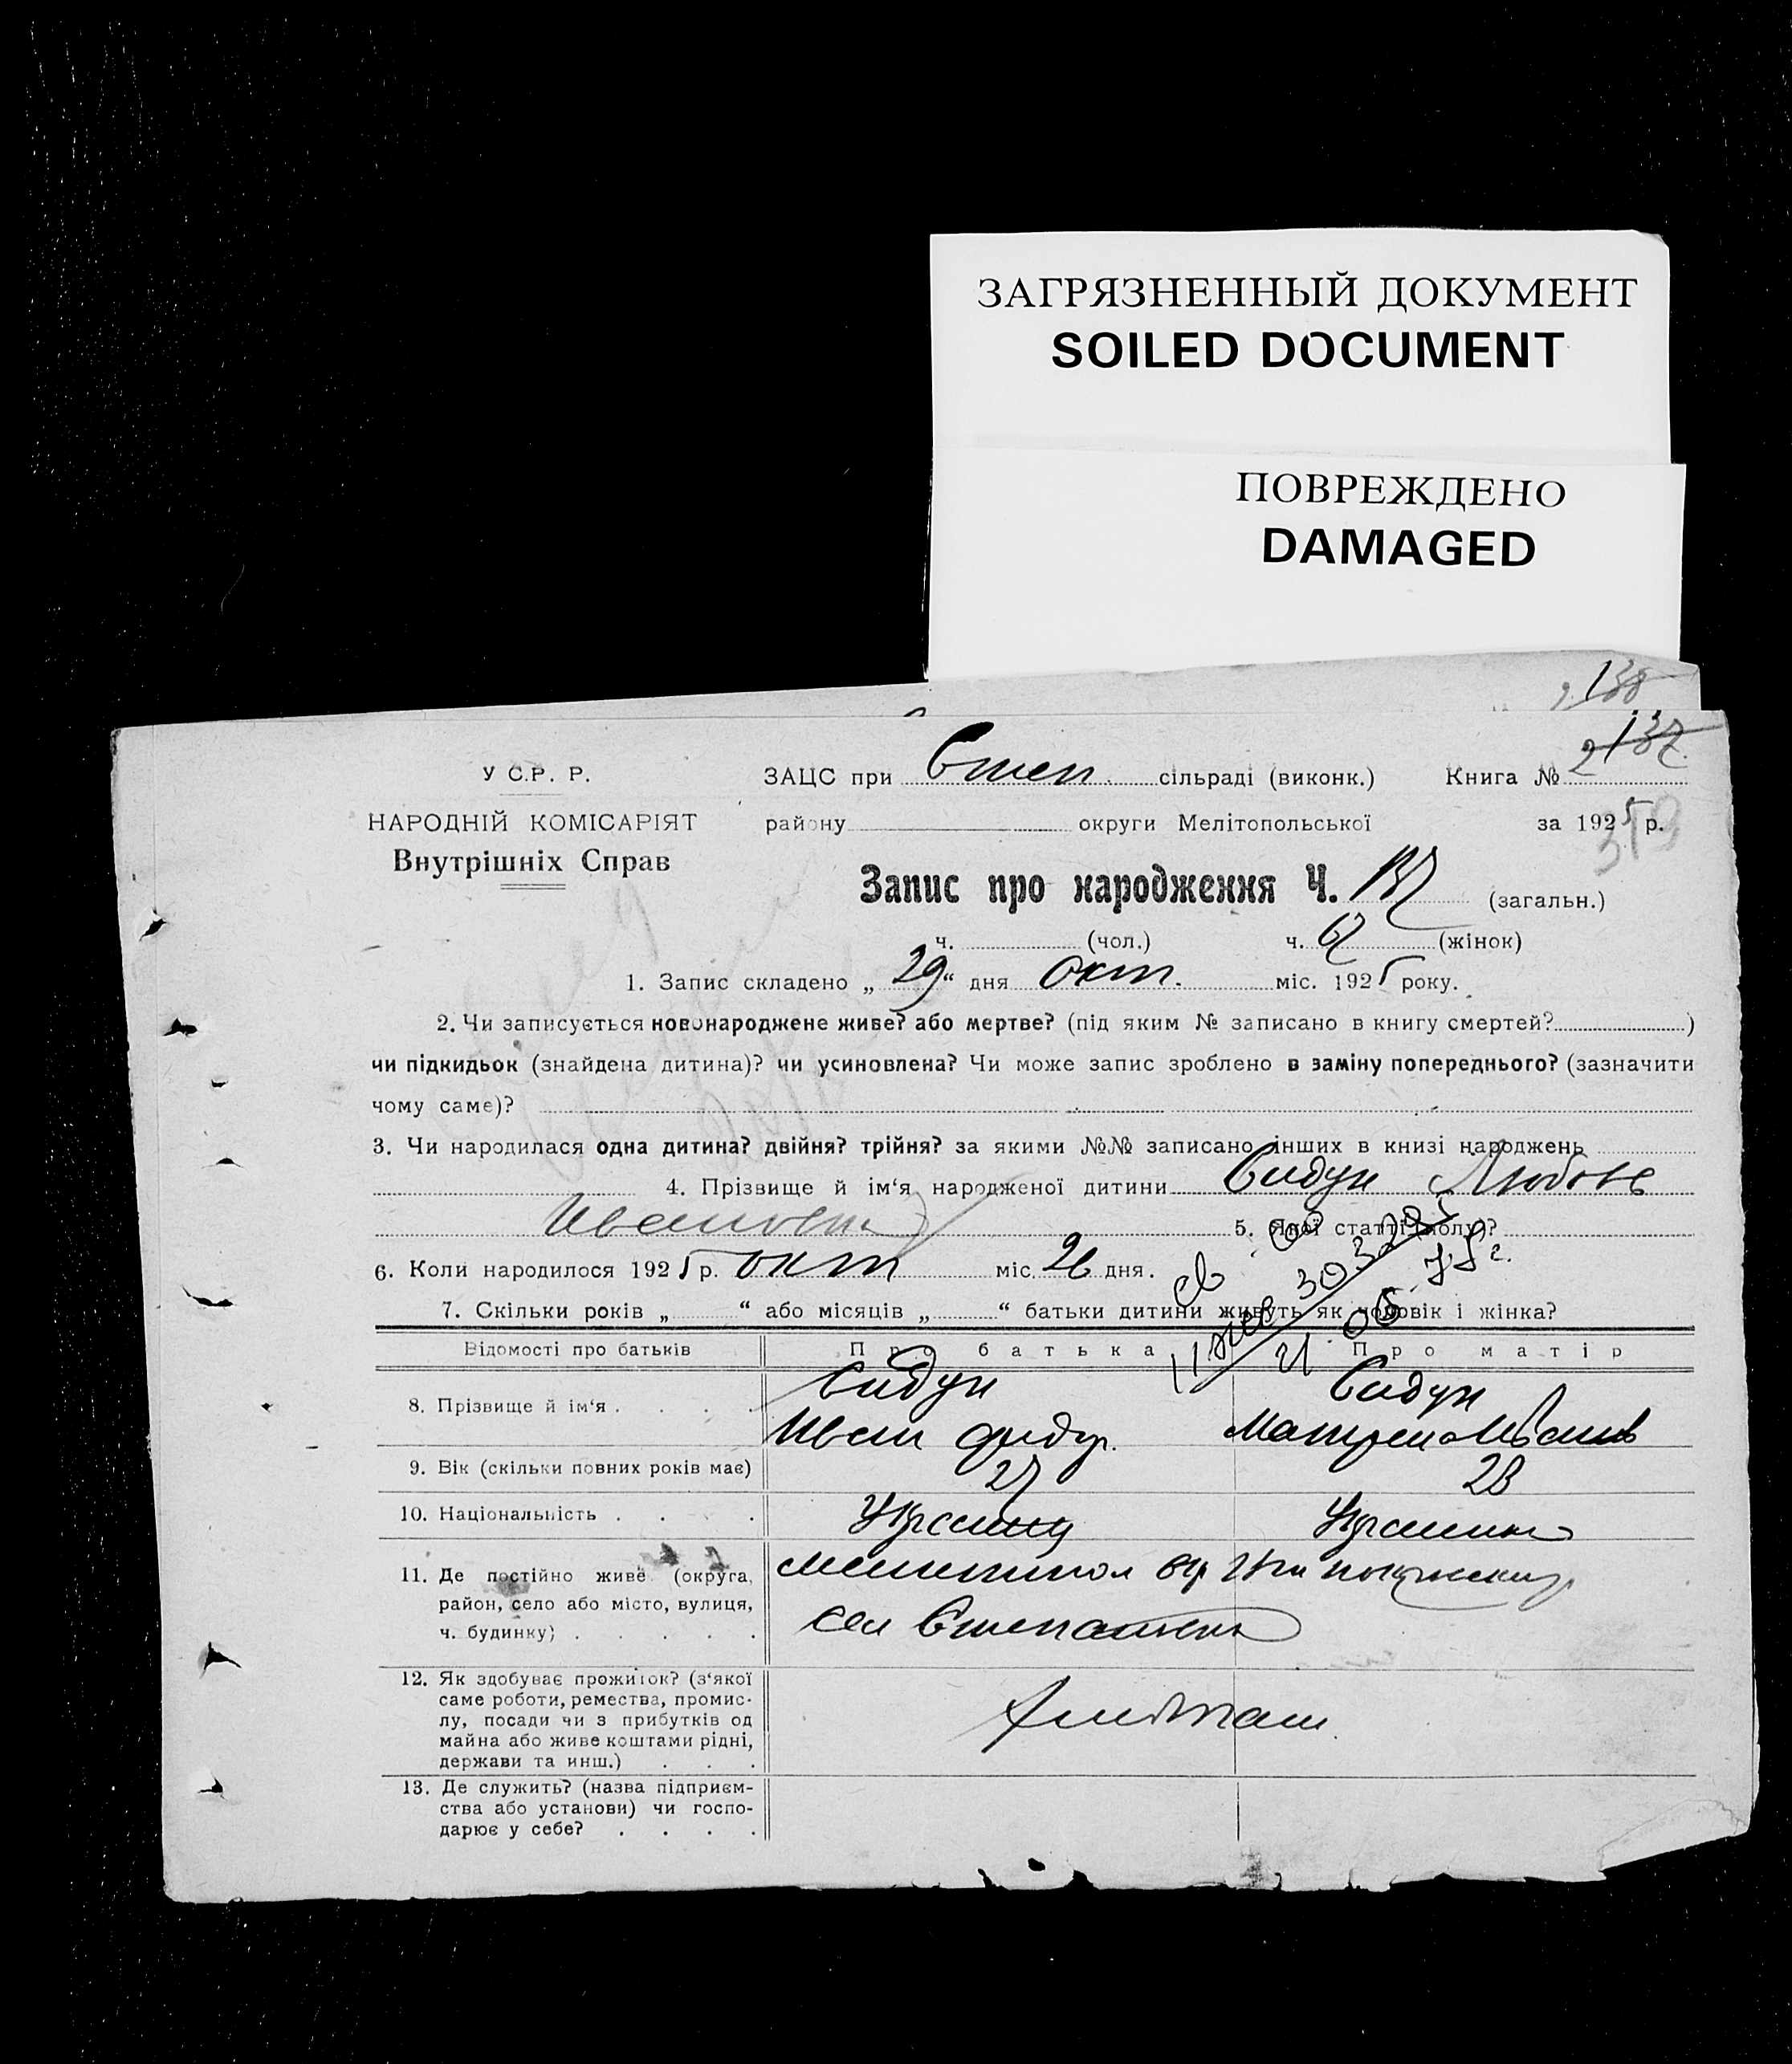 ЗАГРЯЗНЕННЫЙ ДОКУМЕНТ
SOILED DOCUMENT
ПОВРЕЖДЕНО
DAMAGED
138
2 137
У С.Р. Р.
ЗАЦС при Степ. сільраді (виконк.) Книга №
НАРОДНІЙ КОМІСАРІЯТ
району округи Мелітопольської за 1925 р.
Внутрішніх Справ
Запис про народження Ч. 137 (загальн.)
ч. (чол.) ч. 67 (жінок)
1. Запис складено „ 29 “ дня окт. міс. 1925 року.
2. Чи записується новонароджене живе? або мертве? (під яким № записано в книгу смертей? )
чи підкидьок (знайдена дитина)? чи усиновлена? Чи може запис зроблено в заміну попереднього? (зазначити
чому саме)?
3. Чи народилася одна дитина? двійня? трійня? за якими №№ записано інших в книзі народжень
4. Прізвище й ім‘я народженої дитини Сидун Любовь
Ивановна 5. Якої статті (полу)?
6. Коли народилося 1925 р. окт міс. 26 дня.
7. Скільки років „ “ або місяців „ “ батьки дитини живуть як чоловік і жінка?
Відомості про батьків Про батька Про матір
8. Прізвище й ім‘я . . . . Сидун Сидун
Иван Матрена Иванов
9. Вік (скільки повних років має) 27 28
10. Національність . . .
11. Де постійно живе (округа,
район, село або місто, вулиця,
ч. будинку) . . . . .
сел
12. Як здобуває прожиток? (з‘якої
саме роботи, ремества, промис-
лу, посади чи з прибутків од
майна або живе коштами рідні,
держави та инш.) . . .
13. Де служить? (назва підприєм-
ства або установи) чи госпо-
дарює у себе? . . . .